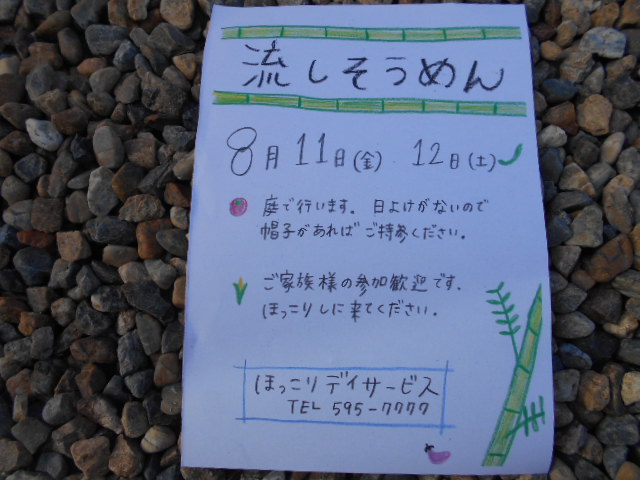 流しそうめん
8月11日(金) 12日(土)
庭で行います。日よけがないので
帽子があればご持参ください。
ご家族様の参加歓迎です.
ほっこりしに来てください。
ほっこりデイサービス
TEL 595-7777